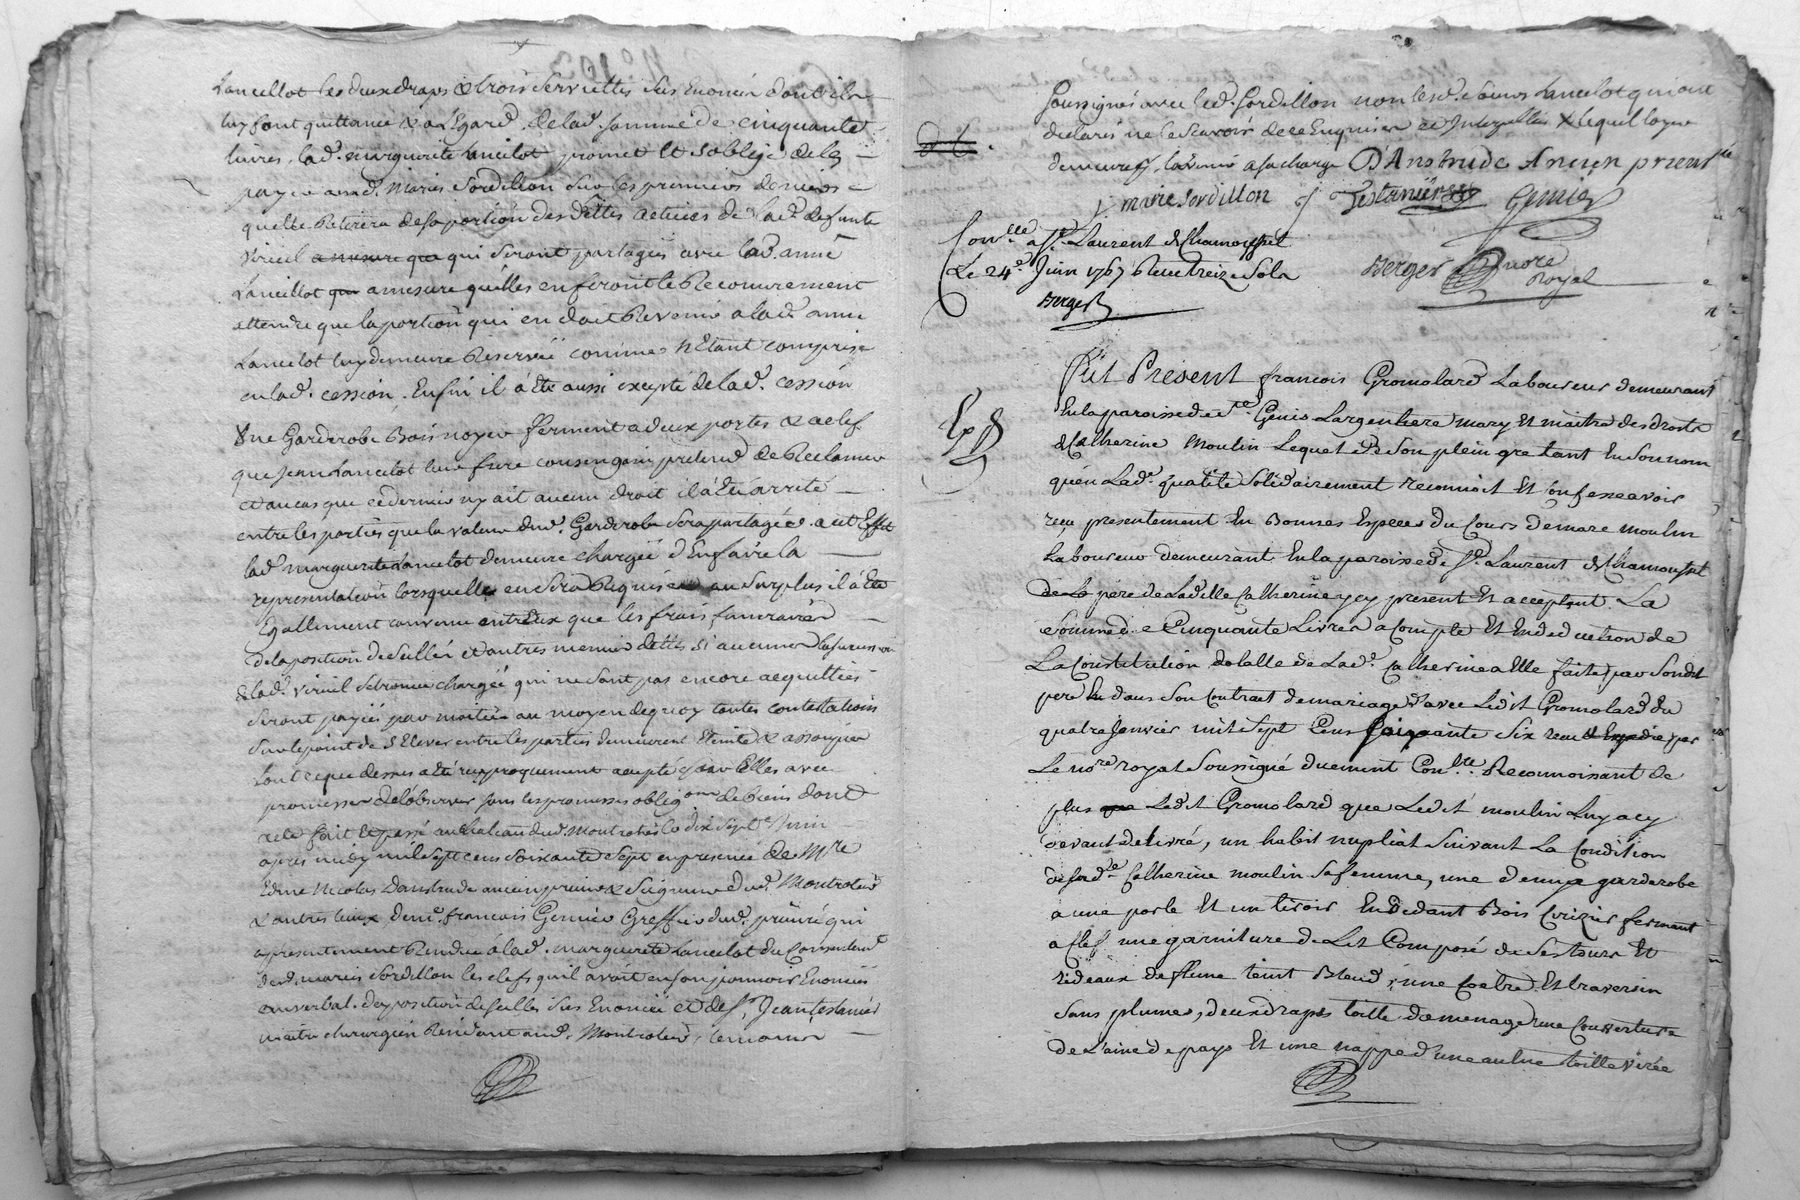 Lancellot les deux draps & trois serviettes sus Enoncés dont ils
luy font quittance & a L'Egard de lad. somme de cinquante
livres, lad. marguerite Lancelot promet Et s'oblige de la
payer aud. Marie Sordillon sur les premiers deniers
quelle Retirera de sa portion des dettes actives de lad. defunte
Viricel a mesure que qui seront partagés avec lad. anne
Lancellot que a mesure quelles en feront le Recouvrement
attendu que la portion qui en doit Revenir a lad. anne
Lancelot luy demeure Reservée comme N'Etant comprise
en lad. cession. Enfin il à Eté aussi excepté de lad. cession
une Garderobe Bois noyer fermant a deux portes & a clef
que Jean Lancelot leur frere consenguin pretend de Reclamer
Et au cas que ce dernier ny ait aucun droit il a Eté arreté
entre les parties que la valeur dud. Garderobe sera partagée a cet Effet
lad. marguerite Lancelot demeure chargée d'En faire la
representation lorsquelle en sera Requise au surplus il à Eté
Egallement convenu entr'Eux que les frais funeraires
de laposition de scellés et autres menues dettes si aucunes la succession
de lad. Viricel se trouve chargée qui ne sont pas encore acquittées
seront payées par moitié au moyen de quoy toutes contestations
sur le point de s'Elever entre les parties demeurent Eteintes & assoupies
tout ce que dessus a été reciproquement accepté par Elles avec
promesse de l'observer sous les promesses oblig.ons de Biens dont
acte fait Et passé au chateau dud. Montrotier le dix sept.e Juin
apres midy mil sept cens soixante sept en presence de M.re
Edme Nicolas Danstrude ancien prieur & Seigneur dud. Montrotier
& autres lieux de m.e francois Genier Greffier dud. prieuré qui
a presentement Rendu a lad. marguerite Lancelot du consentem.t
de lad. marie Sordillon les clefs qu'il avoit en son pouvoir Enoncés
au verbal d'aposition de scellés sus Enoncé et de s.r Jean testanier
maitre chirurgien Residant aud. Montrotier, temoins
soussignés avec lad. Sordillon non lesd. soeurs Lancelot qui ont
declaré ne le scavoir de ce Enquises et Interpellées
demeure a sa charge D'Anstrude Ancien prieur
marie Sordillon Testanier Genier
Con.lle a S.t Laurent de Chamousset
Le 24.e Juin 1767 Recu treize Sols
Berger
Berger Nore Royal
Exp
Fut Present francois Gromolard Laboureur demeurant
En la paroisse de S.te Genis Largentiere mary Et maitre des droits
de Catherine Moulin Lequel De Son plein gre tant En Son nom
quen Lad.e qualité Solidairement reconnoit Et Confesse avoir
recu presentement En Bonnes Especes du Cours de marc moulin
Laboureur demeurant En la paroisse de S.t Laurent de Chamousset
pere de Ladille Catherine ycy present Et acceptant La
Somme de Cinquante Livres a Compte Et En deduction de
La Constitution de lalle de Lad.e Catherine a Elle faite par Son dit
pere dans Son Contract de mariage avec Ledit Gromolard du
quatre Janvier mil Sept Cens Soixante Six recu par
Le no.re royal Soussigné duement Con.lle. Reconnoissant de
plus Ledit Gromolard que Ledit moulin Luy a cy
devant delivré, un habit nuptial Suivant La Condition
de Sad.e Catherine moulin Sa femme, une demye garderobe
a une porte Et un tiroir En Dedant Bois Cerizier fermant
a Clef une garniture de Lit Composé de Ses tours Et
rideaux de fleuret teint Bleud, une Coetre Et traversin
Sans plumes, deux draps toille de menage une Couverture
de Laine de pays Et une nappe d'une aulne toille virée